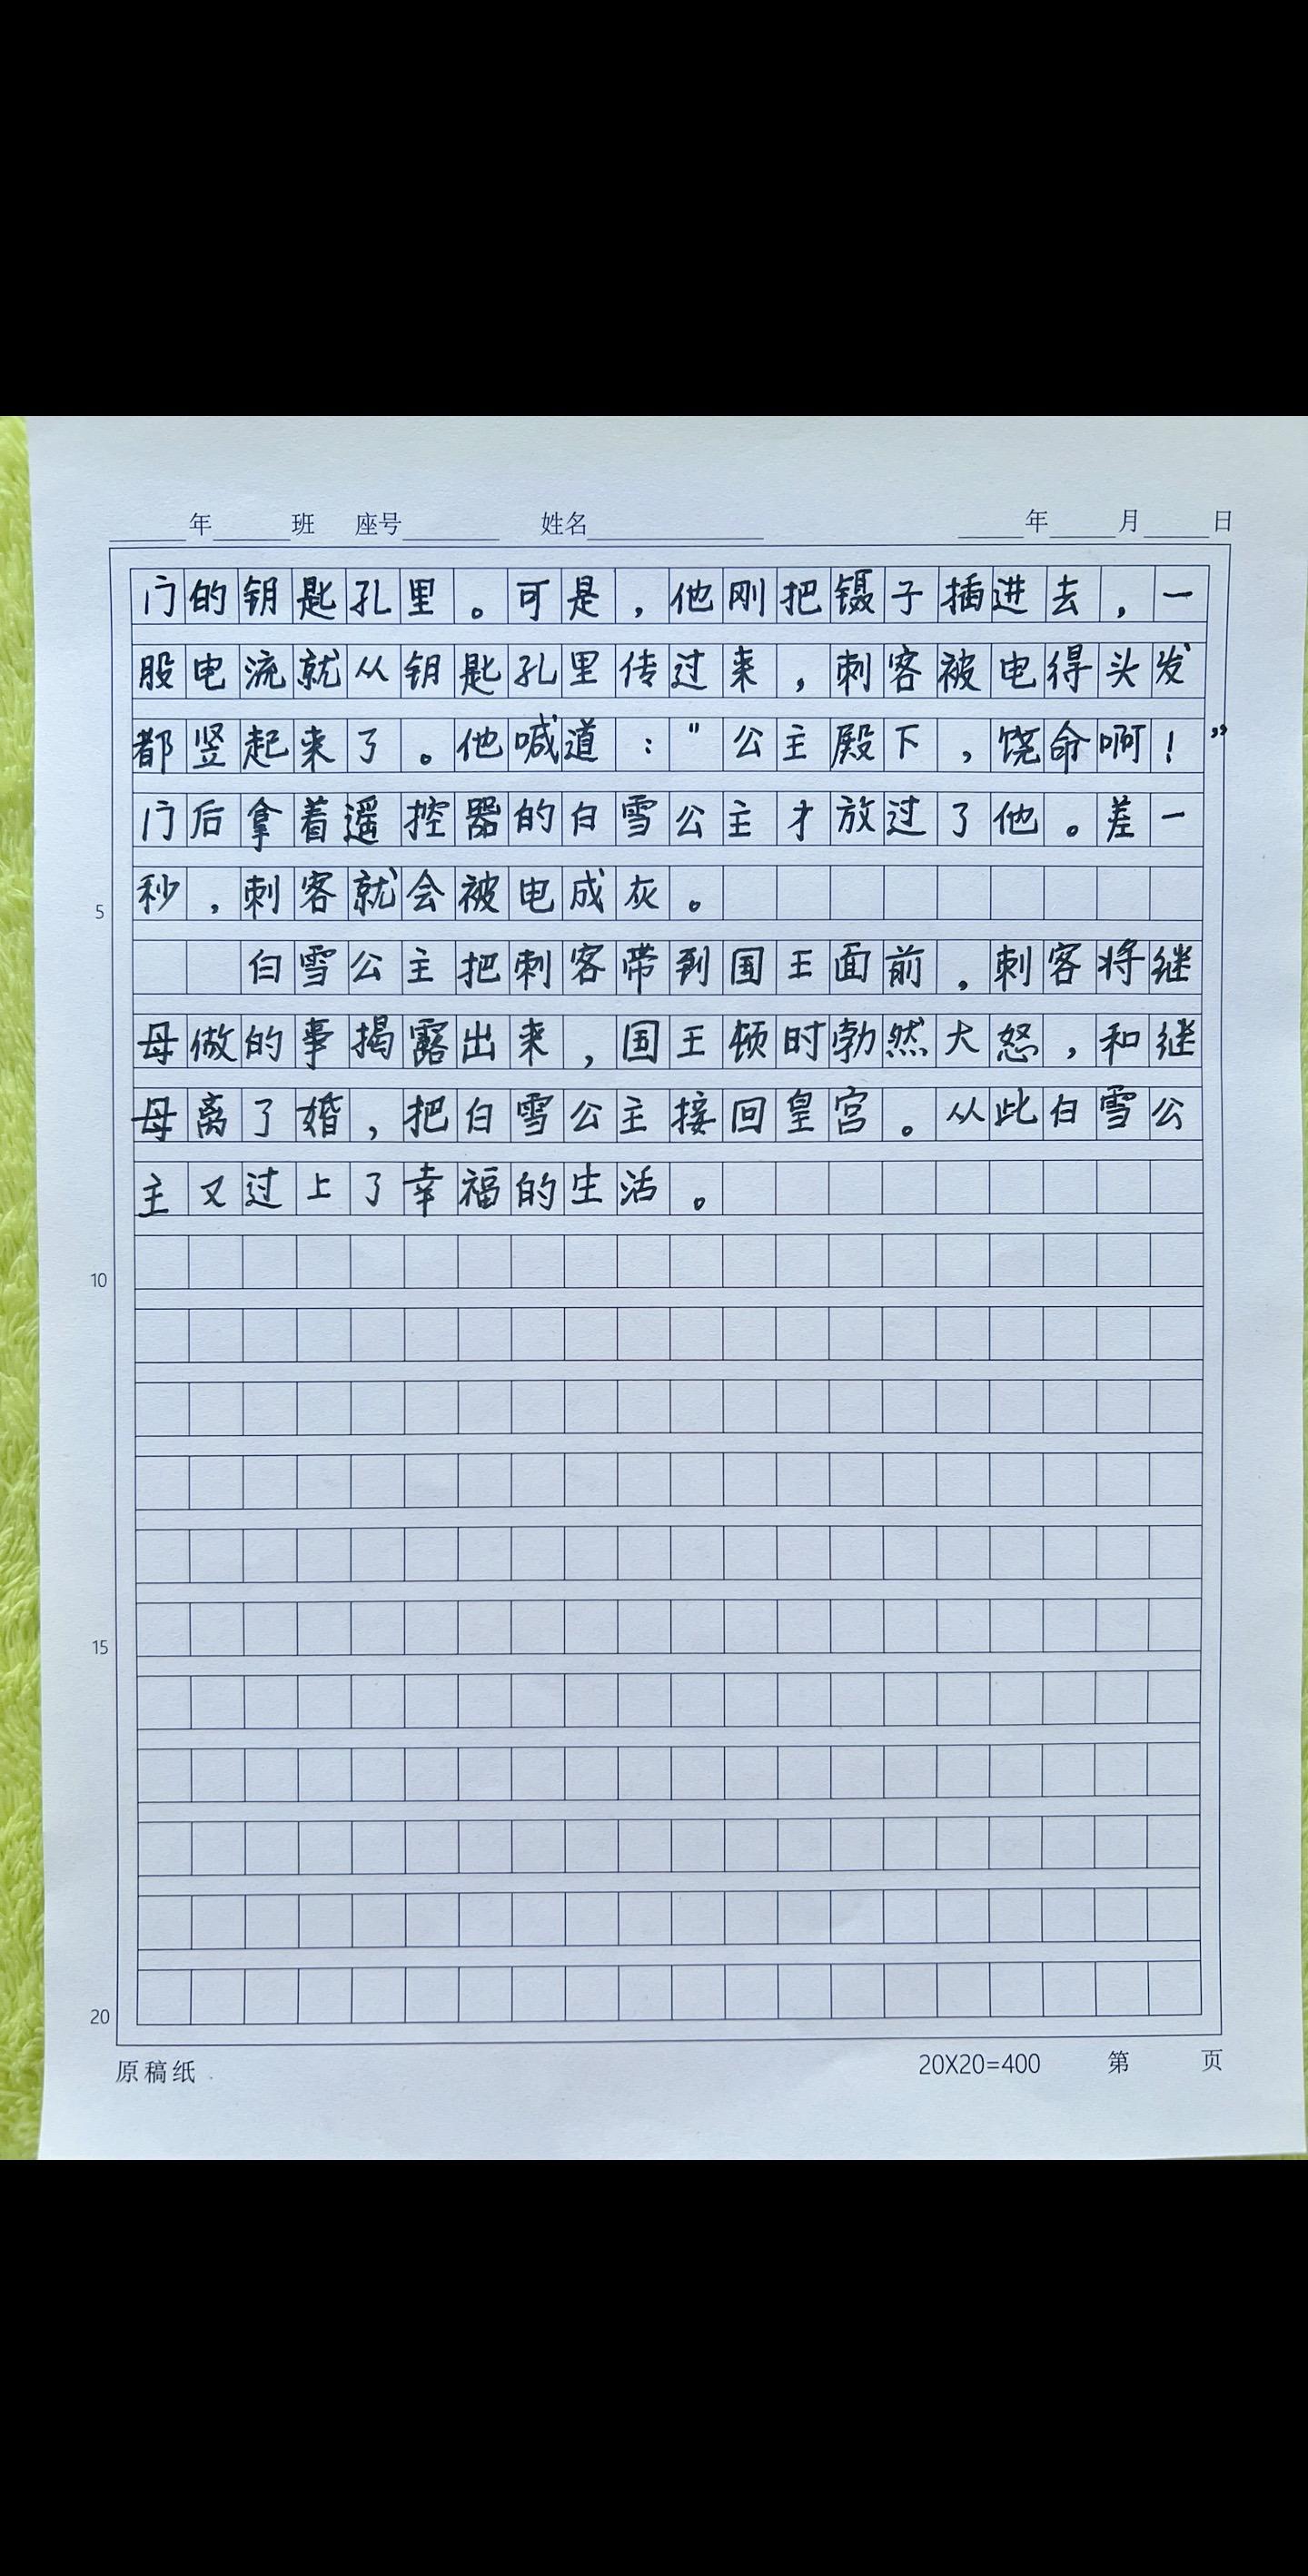 年 班 座号 姓名 年 月 日
门的钥匙孔里。可是，他刚把镊子插进去，一
股电流就从钥匙孔里传过来，刺客被电得头发
都竖起来了。他喊道："公主殿下，饶命啊！”
门后拿着遥控器的白雪公主才放过了他。差一
秒，刺客就会被电成灰。
5
白雪公主把刺客带到国王面前。刺客将继
母做的事揭露出来，国王顿时勃然大怒，和继
母离了婚，把白雪公主接回皇宫。从此白雪公
主又过上了幸福的生活。
10
15
20
原稿纸 20X20=400 第 页